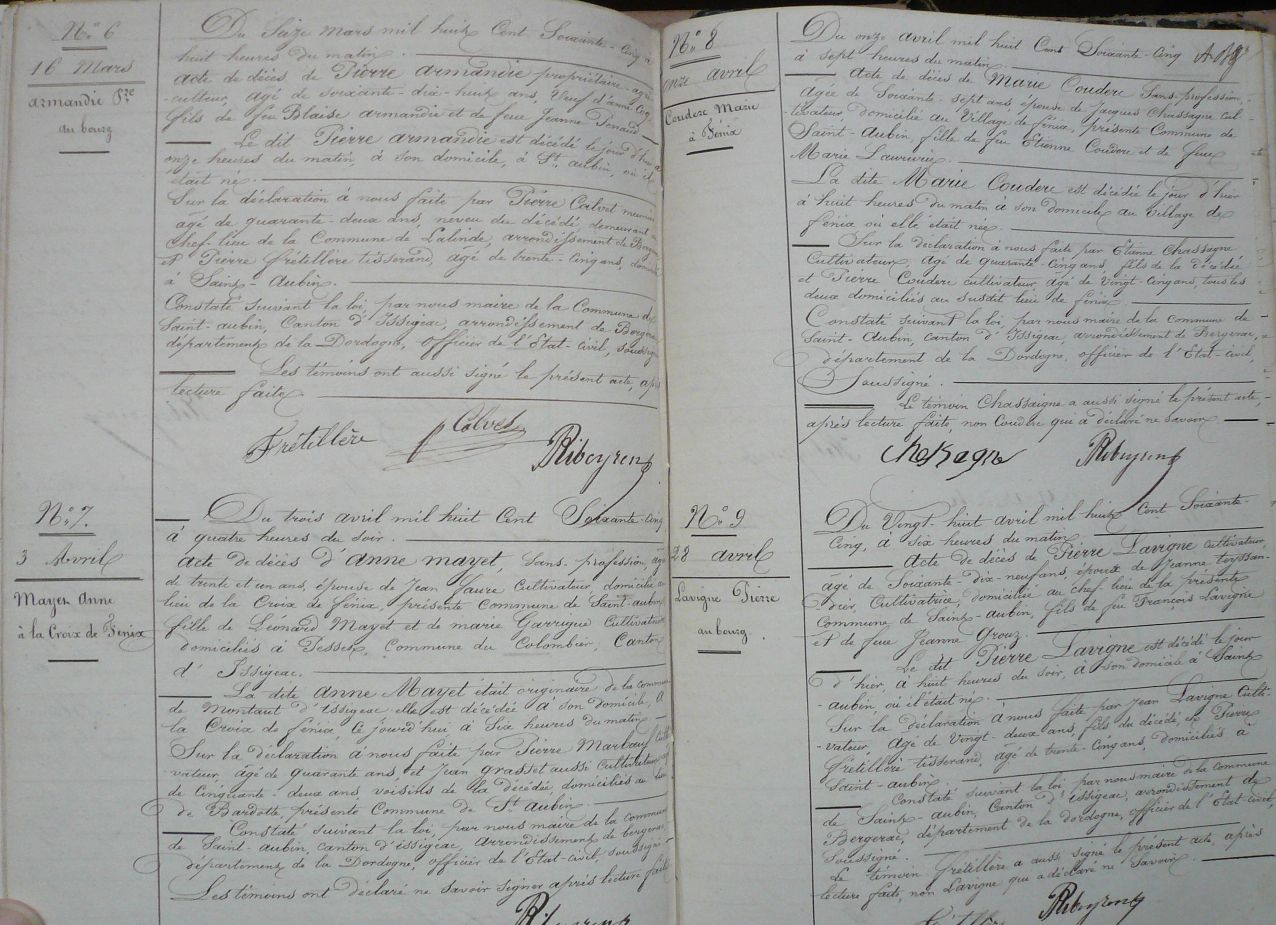 N.º 6
16 Mars
armandie P.re
au bourg
Du Seize Mars mil huit Cent Soixante-Cinq a
huit heures du matin.
acte de décès de Pierre armandie propriétaire-agri
-culteur, agé de Soixante-dix-huit ans, Veuf d'anne
fils de feu Blaise armandie et de feue Jeanne
Le dit Pierre armandie est décédé le jour d'hier a
onze heures du matin à son domicile, à St. aubin, où il
était né.
Sur la déclaration à nous faite par Pierre Calvet
agé de quarante-deux ans, neveu du décédé, demeurant
Chef-lieu de la Commune de Lalinde, arrondissement de
et Pierre frétillère tisserand, agé de trente-cinq ans,
à Saint-Aubin.
Constaté Suivant la loi, par nous maire de la Commune de
Saint-aubin, Canton d'Issigeac, arrondissement de Berge
département de la Dordogne, officier de l'Etat-civil, soussigné
Les témoins ont aussi signé le présent acte, après
lecture faite
Frétillère Calvet Ribeyren
N.º 7.
3 Avril
Mayet Anne
à la Croix de Fénix
Du trois avril mil huit Cent Soixante-Cinq
à quatre heures du soir.
acte de décès d'anne mayet, Sans-profession, agé
de trente et un ans, épouse de Jean faure Cultivateur, domicilié au
lieu de la Croix de fénix, présente Commune de Saint-aubin,
fille de Léonard Mayet et de marie Garrigue Cultivateurs
domiciliés à Tesset, Commune du Colombier, Canton
d'Issigeac.
La dite anne Mayet était originaire de la commune
de Montaut d'Issigeac elle est décédée à son domicile, A
la Croix de fénix, le jourd'hui, à Six heures du matin
Sur la déclaration à nous faite par Pierre Culti
vateur, agé de quarante ans et Jean grasset aussi Cultivateur
de Cinquante-deux ans voisins de la décédée, domiciliés au lieu
de Bardotte, présente Commune de St aubin.
Constaté suivant la loi, par nous maire de la commune
de Saint-aubin, canton d'issigeac, arrondissement de bergerac,
département de la Dordogne, officier de l'Etat-civil, soussigné
Les témoins ont déclaré ne Savoir signer après lecture faite
Ribeyren
N.º 8
onze avril
Couderc Marie
à Fénix
Du onze avril mil huit Cent Soixante-Cinq
à sept heures du matin.
Acte de décès de Marie Couderc Sans-profession,
agée de Soixante-sept ans, épouse de Jacques Chassagne cul-
tivateur, domicilié au Village de fénix, présente Commune de
Saint-Aubin, fille de feu Etienne Couderc et de feue
Marie
La dite Marie Couderc est décédée le jour d'hier
à huit heures du matin, à son domicile au Village de
fénix où elle était née.
Sur la déclaration à nous faite par Etienne Chassagne
Cultivateur, agé de quarante-cinq ans, fils de la décédée
et Pierre Couderc cultivateur, agé de Vingt-cinq ans, tous les
deux domiciliés au susdit lieu de fénix.
Constaté suivant la loi, par nous maire de la commune de
Saint-Aubin, canton d'Issigeac, arrondissement de Bergerac,
département de la Dordogne, officier de l'Etat-civil,
Soussigné.
Le témoin Chassaigne a aussi signé le présent acte,
après lecture faite, non Couderc qui a déclaré ne Savoir.
Chassagne Ribeyren
N.º 9
28 avril
Lavigne Pierre
au bourg.
Du Vingt-huit avril mil huit Cent Soixante-
Cinq, à Six heures du matin.
Acte de décès de Pierre Lavigne cultivateur
agé de Soixante-dix-neuf ans, époux de Jeanne teyssan-
dier, Cultivatrice, domiciliée au chef-lieu de la présente
Commune de Saint-aubin, fils de feu François Lavigne
et de feue Jeanne Grouz.
Le dit Pierre Lavigne est décédé le jour
d'hier, à huit heures du soir, à son domicile à Saint-
aubin, où il était né.
Sur la déclaration à nous faite par Jean Lavigne Culti-
-vateur, agé de Vingt-deux ans, fils du décédé, et Pierre
frétillère tisserand, agé de trente-cinq ans, domiciliés à
Saint-aubin.
Constaté Suivant la loi, par nous maire de la commune
de Saint-aubin, Canton d'issigeac, arrondissement de
Bergerac, département de la dordogne, officier de l'Etat-civil,
Soussigné.
Le témoin frétillère a aussi signé le présent acte, après
lecture faite, non Lavigne qui a déclaré ne Savoir.
Ribeyren